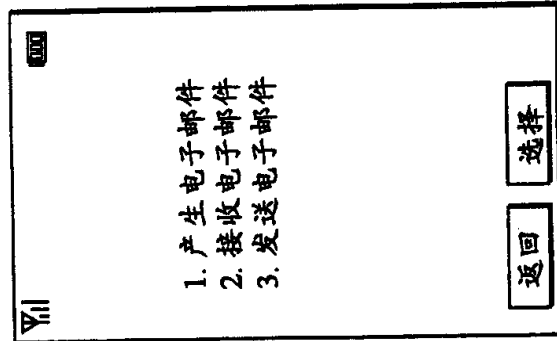 1. 产生电子邮件
2. 接收电子邮件
3. 发送电子邮件
返回 选择